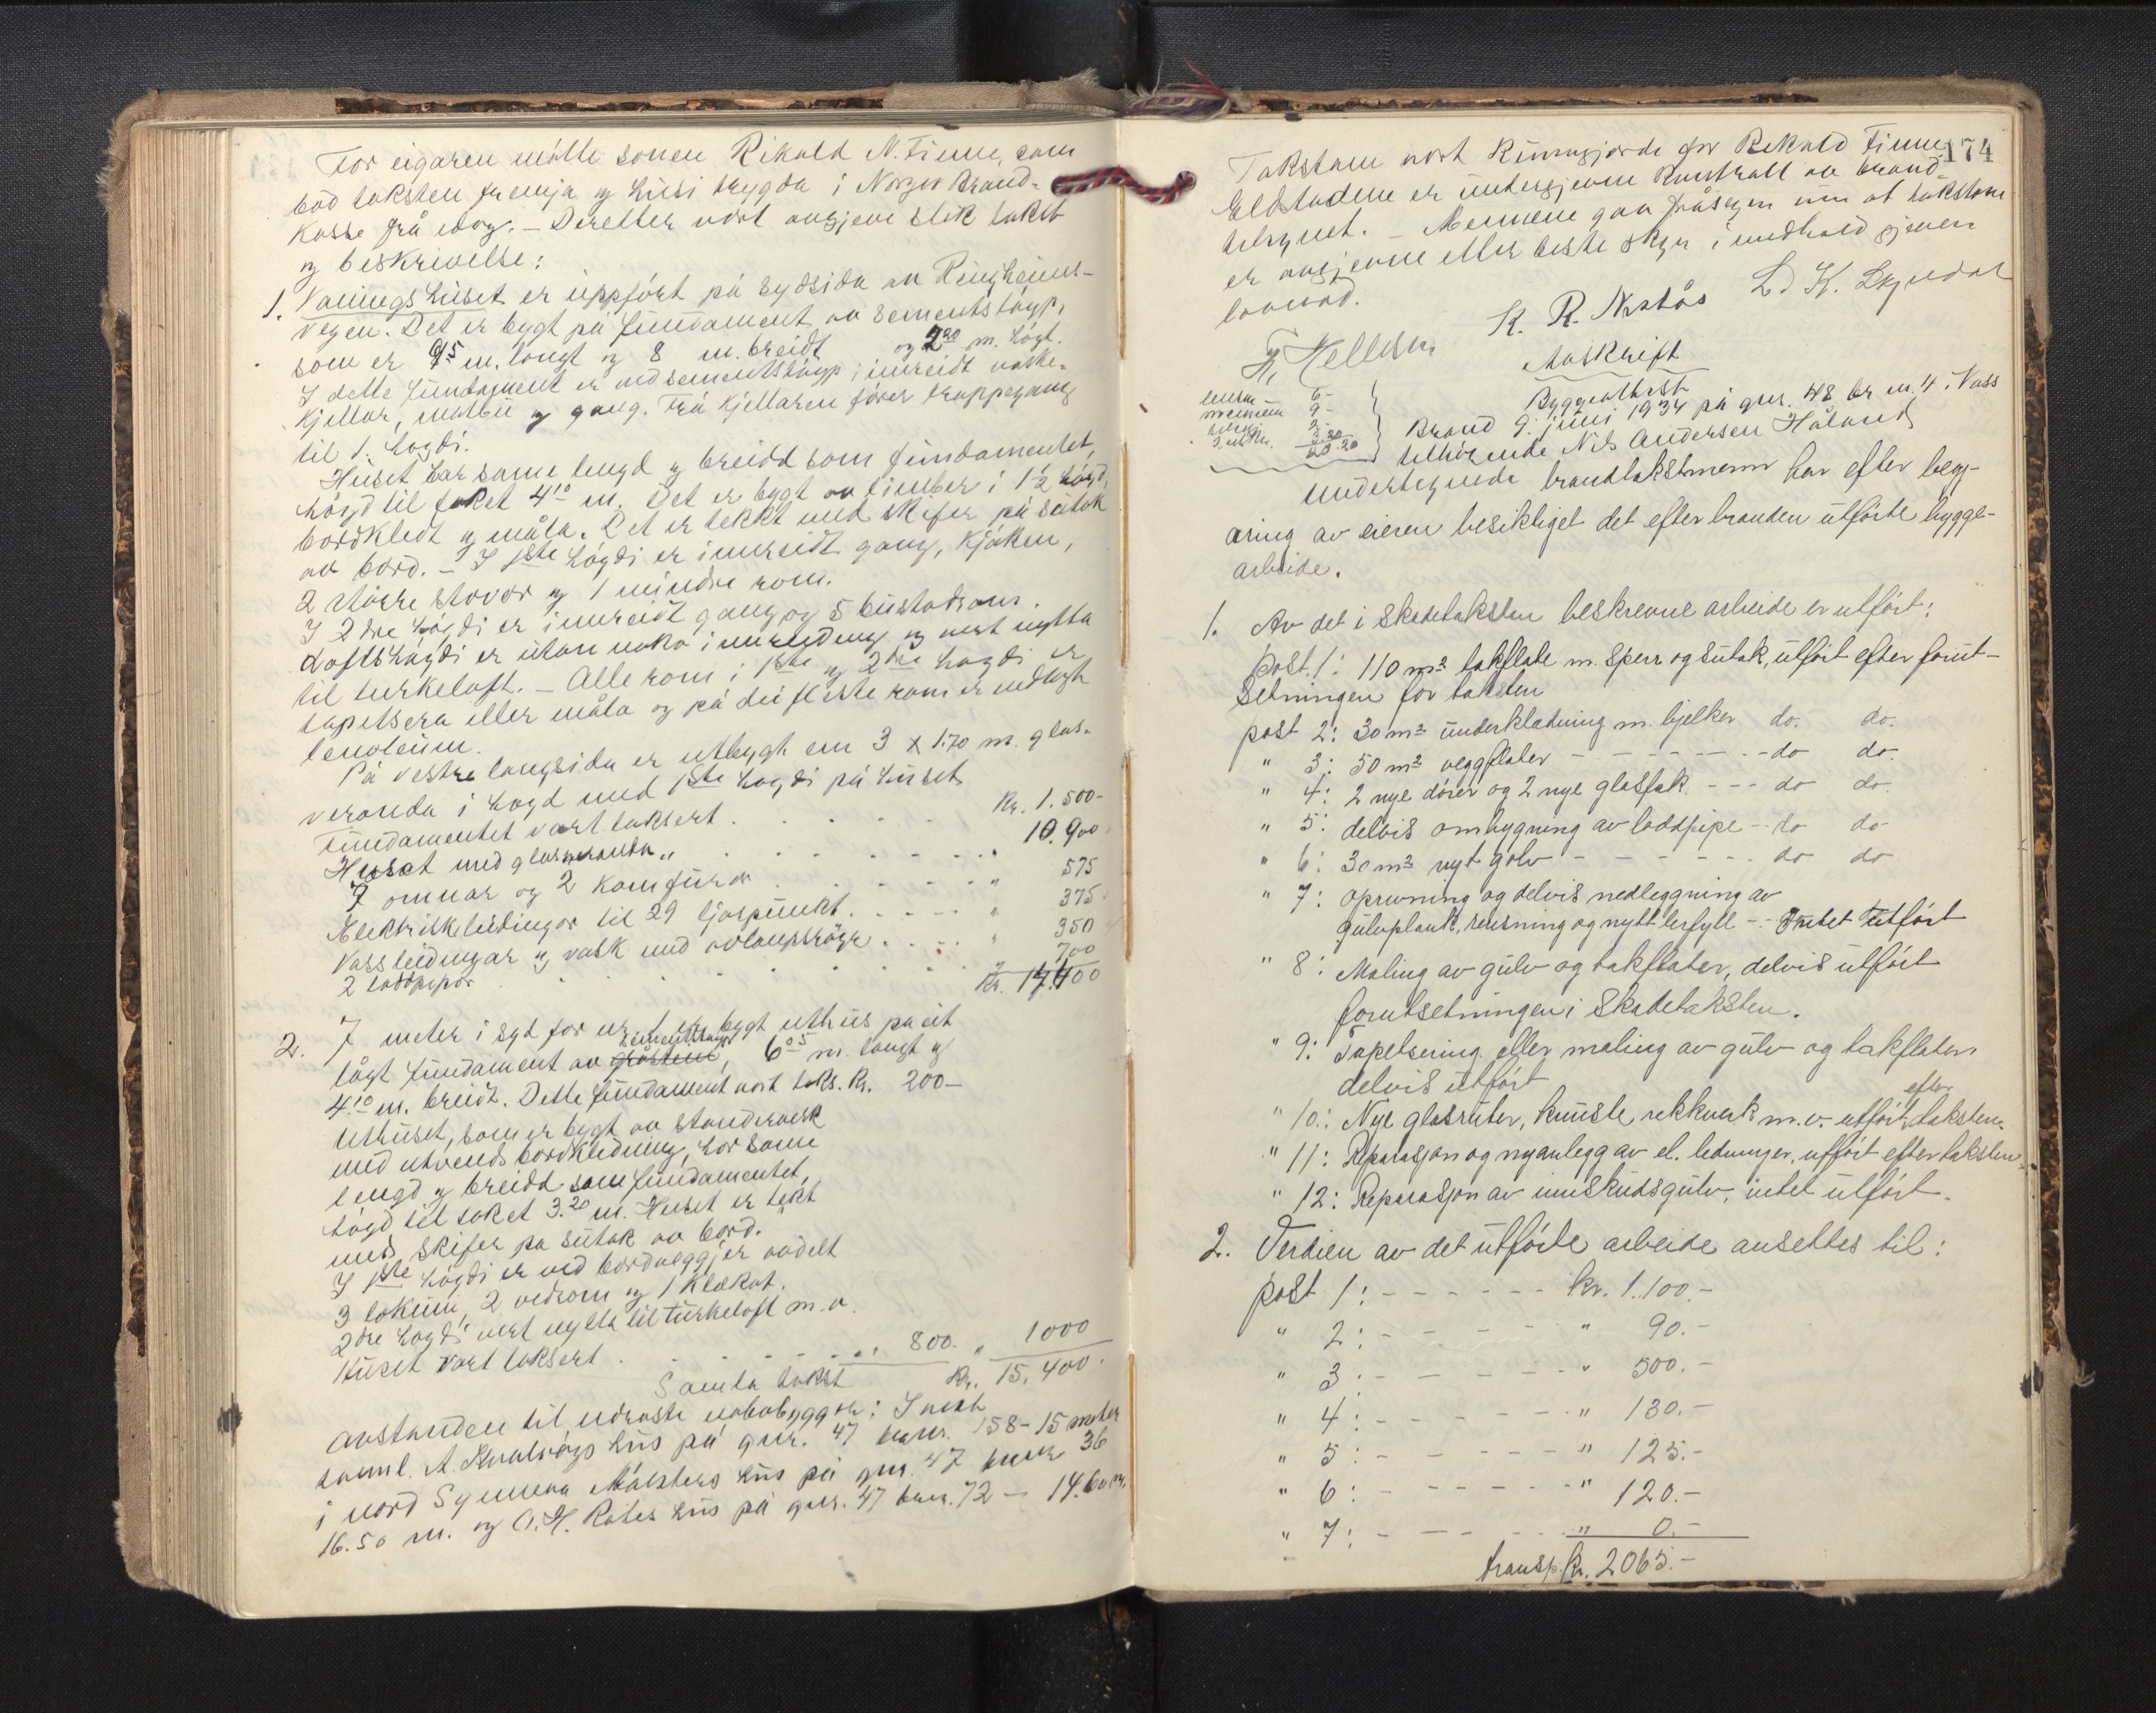 For eigaren møtte sonen Rikold N. Finne, som
bad taksten fremja og husi trygda i Norges Brand-
kasse frå idag. – Deretter vart avgjeve slik takst
og beskrivelse:
1. Vaaningshuset er uppført på sydsida av Ringheims-
vegen. Det er bygt på fundament av sementstøyp,
som er 9.5 m. langt og 8 m. breidt og 2.20 m. høgt.
I dette fundament er ved sementstøyp innreidt vaske-
kjellar, matbu og gang. Frå kjellaren fører trappegang
til 1. høgdi.
Huset har same lengd og breidd som fundamentet,
høgd til taket 4.10 m. Det er bygt av timber i 1½ høgd,
bordkledt og måla. Det er tekkt med skifer på sutak
av bord. – I 1ste høgdi er innreidt gang, kjøken,
2 større stovor og 1 mindre rom.
I 2dre høgdi er innreidt gang og 5 bustadrom.
Loftshøgdi er utan noko innreiding og vert nytta
til turkeloft. – Alle rom i 1ste og 2dre høgdi er
tapetsera eller måla og på dei fleste rom er nedlagt
lenoleum.
På vestre langsida er utbygt ein 3 x 1.70 m. glas-
veranda i høgd med 1ste høgdi på huset.
Fundamentet vart taksert . . . Kr. 1.500-
Huset med glasveranda " . . . . 10.900
7 omnar og 2 komfurar . . . . " 575
Elektriske leidingar til 29 ljospunkt . . . . " 375
Vassleidingar og vask med avlaupsrøyr . . . . " 350
2 loddpipor . . . . . " 700
Kr. 14.400
2. 7 meter i syd for nr. 1 er bygt uthus på eit
lågt fundament av gråstein sementstøyp, 6.05 m. langt og
4.10 m. breidt. Dette fundament vart taks. Kr. 200-
Uthuset, som er bygt av standerverk
med utvendes bordkledning, har same
lengd og breidd som fundamentet,
høgd til taket 3.20 m. Huset er tekt
med skifer på sutak av bord.
I 1ste høgdi er ved bordveggjer avdelt
3 lokum, 2 vedrom og 1
2dre høgdi vert nytta til turkeloft m.v.
Huset vart taksert . . . . . 800. " 1000
Samla takst Kr. 15.400.
Avstanden til næraste nabobyggor: I vest
A. Kvalvågs hus på gnr. 47 bnr. 158 – 15 meter
i nord Synneva Mølsters hus på gnr. 47 bnr. 36
16.50 m. og O. H. Rokes hus på gnr. 47 bnr. 72 – 14.60 m.
174
Takstane vart kunngjorde for Rikold Finne.
Eldstadene er undergjevne kontroll av brand-
tilsynet. – Mennene gav fråsegn um at takstane
er avgjevne etter beste skyn i medhald gjeven
lovnad.
K. R. Nestås L. K.
H. Hellesn
Avskrift
Byggeattest
lensm 6-
mennene 9-
2-
2 utskr. 3.20
20.20
Brand 9. juni 1934 på gnr. 48 br. nr. 4 i Voss
tilhørende Nils Andersen Håland
Undertegnede brandtakstmenn har efter begj-
æring av eieren besiktiget det efter branden utførte bygge-
arbeide.
1. Av det i skadetaksten beskrevne arbeide er utført:
Post. 1: 110 m² takflate m. sperr og sutak, utført efter forut-
setningen for taksten
post 2: 30 m² underklædning m. bjelker do. do.
" 3: 50 m² veggflater – – – – – – – do do.
" 4: 2 nye dører og 2 nye glasfak. – – – do do.
" 5: delvis ombygning av loddpipe – – do do
" 6: 30 m² nyt golv – – – – – – – do do
" 7: oprivning og delvis nedleggning av
gulvplank, rensning og nytt lerfyll – – Intet utført
" 8: Maling av gulv og takflater, delvis utført
forutsetningen i skadetaksten.
" 9: Tapetsering eller maling av gulv og takflater
delvis utført
" 10: Nye glasruter, knuste rekkverk m.v. utført efter taksten.
" 11: Reparasjon og nyanlegg av el. ledninger, utført efter taksten.
" 12: Reparasjon av innskudsgulv, intet utført.
2. Verdien av det utførte arbeide ansettes til:
post 1: – – – – – – kr. 1.100.–
" 2: – – – – – " 90.–
" 3: – – – – – – " 500.–
" 4: – – – – – – " 130.–
" 5: – – – – – – " 125.–
" 6: – – – – – – " 120.–
" 7: – – – – – " 0.–
transp. Kr. 2065.–